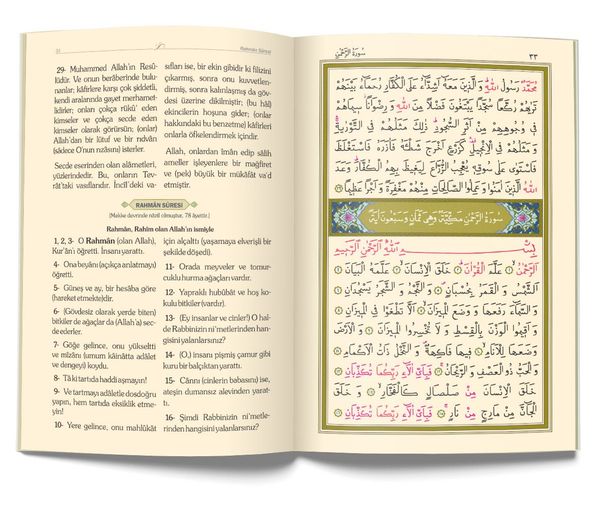 Rahmân Sûresi
29- Muhammed Allah'ın Resû-
lüdür. Ve onun berâberinde bulu-
nanlar; kâfirlere karşı çok şiddetli,
kendi aralarında gayet merhamet-
lidirler; onları çokça rükû' eden
kimseler ve çokça secde eden
kimseler olarak görürsün; (onlar)
Allah'dan bir lütuf ve bir rıdvân
(sâdece O'nun rızâsını) isterler.
Secde eserinden olan alâmetleri,
yüzlerindedir. Bu, onların Tev-
rât'taki vasıflarıdır. İncîl'deki va-
sıfları ise, bir ekin gibidir ki filizini
çıkarmış, sonra onu kuvvetlen-
dirmiş, sonra kalınlaşmış da göv-
desi üzerine dikilmiştir; (bu hâl)
ekincilerin hoşuna gider; (onlar
hakkındaki bu benzetme) kâfirleri
onlarla öfkelendirmek içindir.
Allah, onlardan îmân edip sâlih
ameller işleyenlere bir mağfiret
ve (pek) büyük bir mükâfât va'd
etmiştir.
RAHMÂN SÛRESİ
(Mekke devrinde nâzil olmuştur, 78 âyettir.)
Rahmân, Rahîm olan Allah'ın ismiyle
1, 2, 3- O Rahmân (olan Allah),
Kur'ân'ı öğretti. İnsanı yarattı.
4- Ona beyânı (açıkça anlatmayı)
öğretti.
5- Güneş ve ay, bir hesâba göre
(hareket etmekte)dir.
6- (Gövdesiz olarak yerde biten)
bitkiler de ağaçlar da (Allah'a) sec-
de ederler.
7- Göğe gelince, onu yükseltti
ve mîzânı (umum kâinâtta adâlet
ve dengeyi) koydu.
8- Tâ ki tartıda haddi aşmayın!
9- Ve tartmayı adâletle dosdoğru
yapın, hem tartıda eksiklik etme-
yin!
10- Yere gelince, onu mahlûkât
için alçalttı (yaşamaya elverişli bir
şekilde döşedi).
11- Orada meyveler ve tomur-
cuklu hurma ağaçları vardır.
12- Yapraklı hubûbât ve hoş ko-
kulu bitkiler (vardır).
13- (Ey insanlar ve cinler!) O hal-
de Rabbinizin ni'metlerinden han-
gisini yalanlarsınız?
14- (O,) insanı pişmiş çamur gibi
kuru bir balçıktan yarattı.
15- Cânnı (cinlerin babasını) ise,
ateşin dumansız alevinden yarat-
tı.
16- Şimdi Rabbinizin ni'metle-
rinden hangisini yalanlarsınız?
سُورَةُ الرَّحْمٰنِ
٣٣
مُحَمَّدٌ رَسُولُ اللّٰهِ وَالَّذِينَ مَعَهُ اَشِدَّاءُ عَلَى الْكُفَّارِ رُحَمَاءُ بَيْنَهُمْ
تَرٰيهُمْ رُكَّعًا سُجَّدًا يَبْتَغُونَ فَضْلًا مِنَ اللّٰهِ وَرِضْوَانًا سِيمَاهُمْ
فِى وُجُوهِهِمْ مِنْ اَثَرِ السُّجُودِ ذٰلِكَ مَثَلُهُمْ فِى التَّوْرٰيةِ
وَمَثَلُهُمْ فِى الْاِنْجِيلِ كَزَرْعٍ اَخْرَجَ شَطْئَهُ فَاٰزَرَهُ فَاسْتَغْلَظَ
فَاسْتَوٰى عَلٰى سُوقِهِ يُعْجِبُ الزُّرَّاعَ لِيَغِيظَ بِهِمُ الْكُفَّارَ وَعَدَ
اللّٰهُ الَّذِينَ اٰمَنُوا وَعَمِلُوا الصَّالِحَاتِ مِنْهُمْ مَغْفِرَةً وَاَجْرًا عَظِيمًا ٢٩
سُورَةُ الرَّحْمٰنِ مَكِّيَّةٌ وَهِىَ ثَمَانٍ وَسَبْعُونَ اٰيَةً
بِسْمِ اللّٰهِ الرَّحْمٰنِ الرَّحِيمِ
اَلرَّحْمٰنُ ١ عَلَّمَ الْقُرْاٰنَ ٢ خَلَقَ الْاِنْسَانَ ٣ عَلَّمَهُ الْبَيَانَ ٤
اَلشَّمْسُ وَالْقَمَرُ بِحُسْبَانٍ ٥ وَالنَّجْمُ وَالشَّجَرُ يَسْجُدَانِ
٦ وَالسَّمَاءَ رَفَعَهَا وَوَضَعَ الْمِيزَانَ ٧ اَلَّا تَطْغَوْا فِى الْمِيزَانِ
٨ وَاَقِيمُوا الْوَزْنَ بِالْقِسْطِ وَلَا تُخْسِرُوا الْمِيزَانَ ٩ وَالْاَرْضَ
وَضَعَهَا لِلْاَنَامِ ١٠ فِيهَا فَاكِهَةٌ وَالنَّخْلُ ذَاتُ الْاَكْمَامِ
١١ وَالْحَبُّ ذُو الْعَصْفِ وَالرَّيْحَانُ ١٢ فَبِاَىِّ اٰلَاءِ رَبِّكُمَا تُكَذِّبَانِ
١٣ خَلَقَ الْاِنْسَانَ مِنْ صَلْصَالٍ كَالْفَخَّارِ ١٤ وَخَلَقَ
الْجَانَّ مِنْ مَارِجٍ مِنْ نَارٍ ١٥ فَبِاَىِّ اٰلَاءِ رَبِّكُمَا تُكَذِّبَانِ ١٦